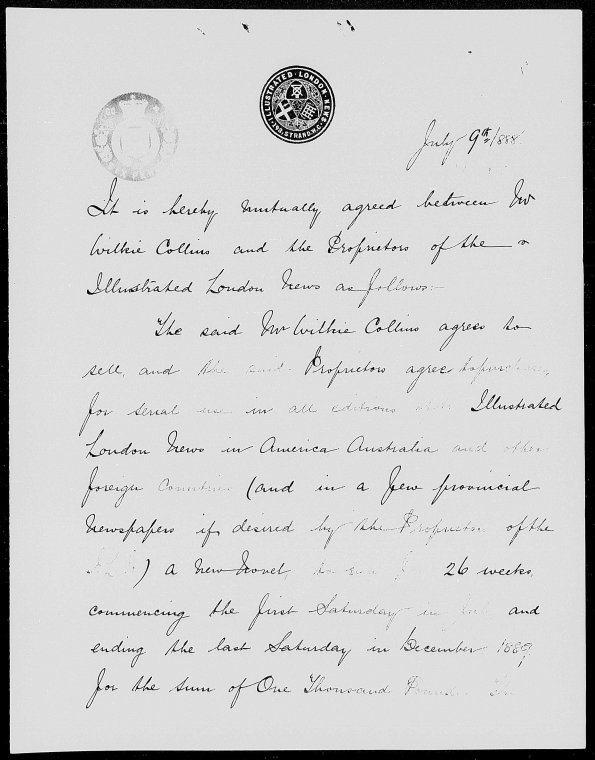 ILLUSTRATED · LONDON · NEWS · 198, STRAND, W.C.
July 9th 1888.
It is hereby mutually agreed between Mr
Wilkie Collins and the Proprietors of the
Illustrated London News as follows:—
The said Mr Wilkie Collins agrees to
sell, and the said Proprietors agree to purchase,
for serial use in all editions of the Illustrated
London News in America Australia and other
foreign Countries (and in a few provincial
Newspapers if desired by the Proprietors of the
I.L.N.) a New Novel, to run for 26 weeks,
commencing the first Saturday in July and
ending the last Saturday in December 1889,
for the sum of One Thousand Pounds. The